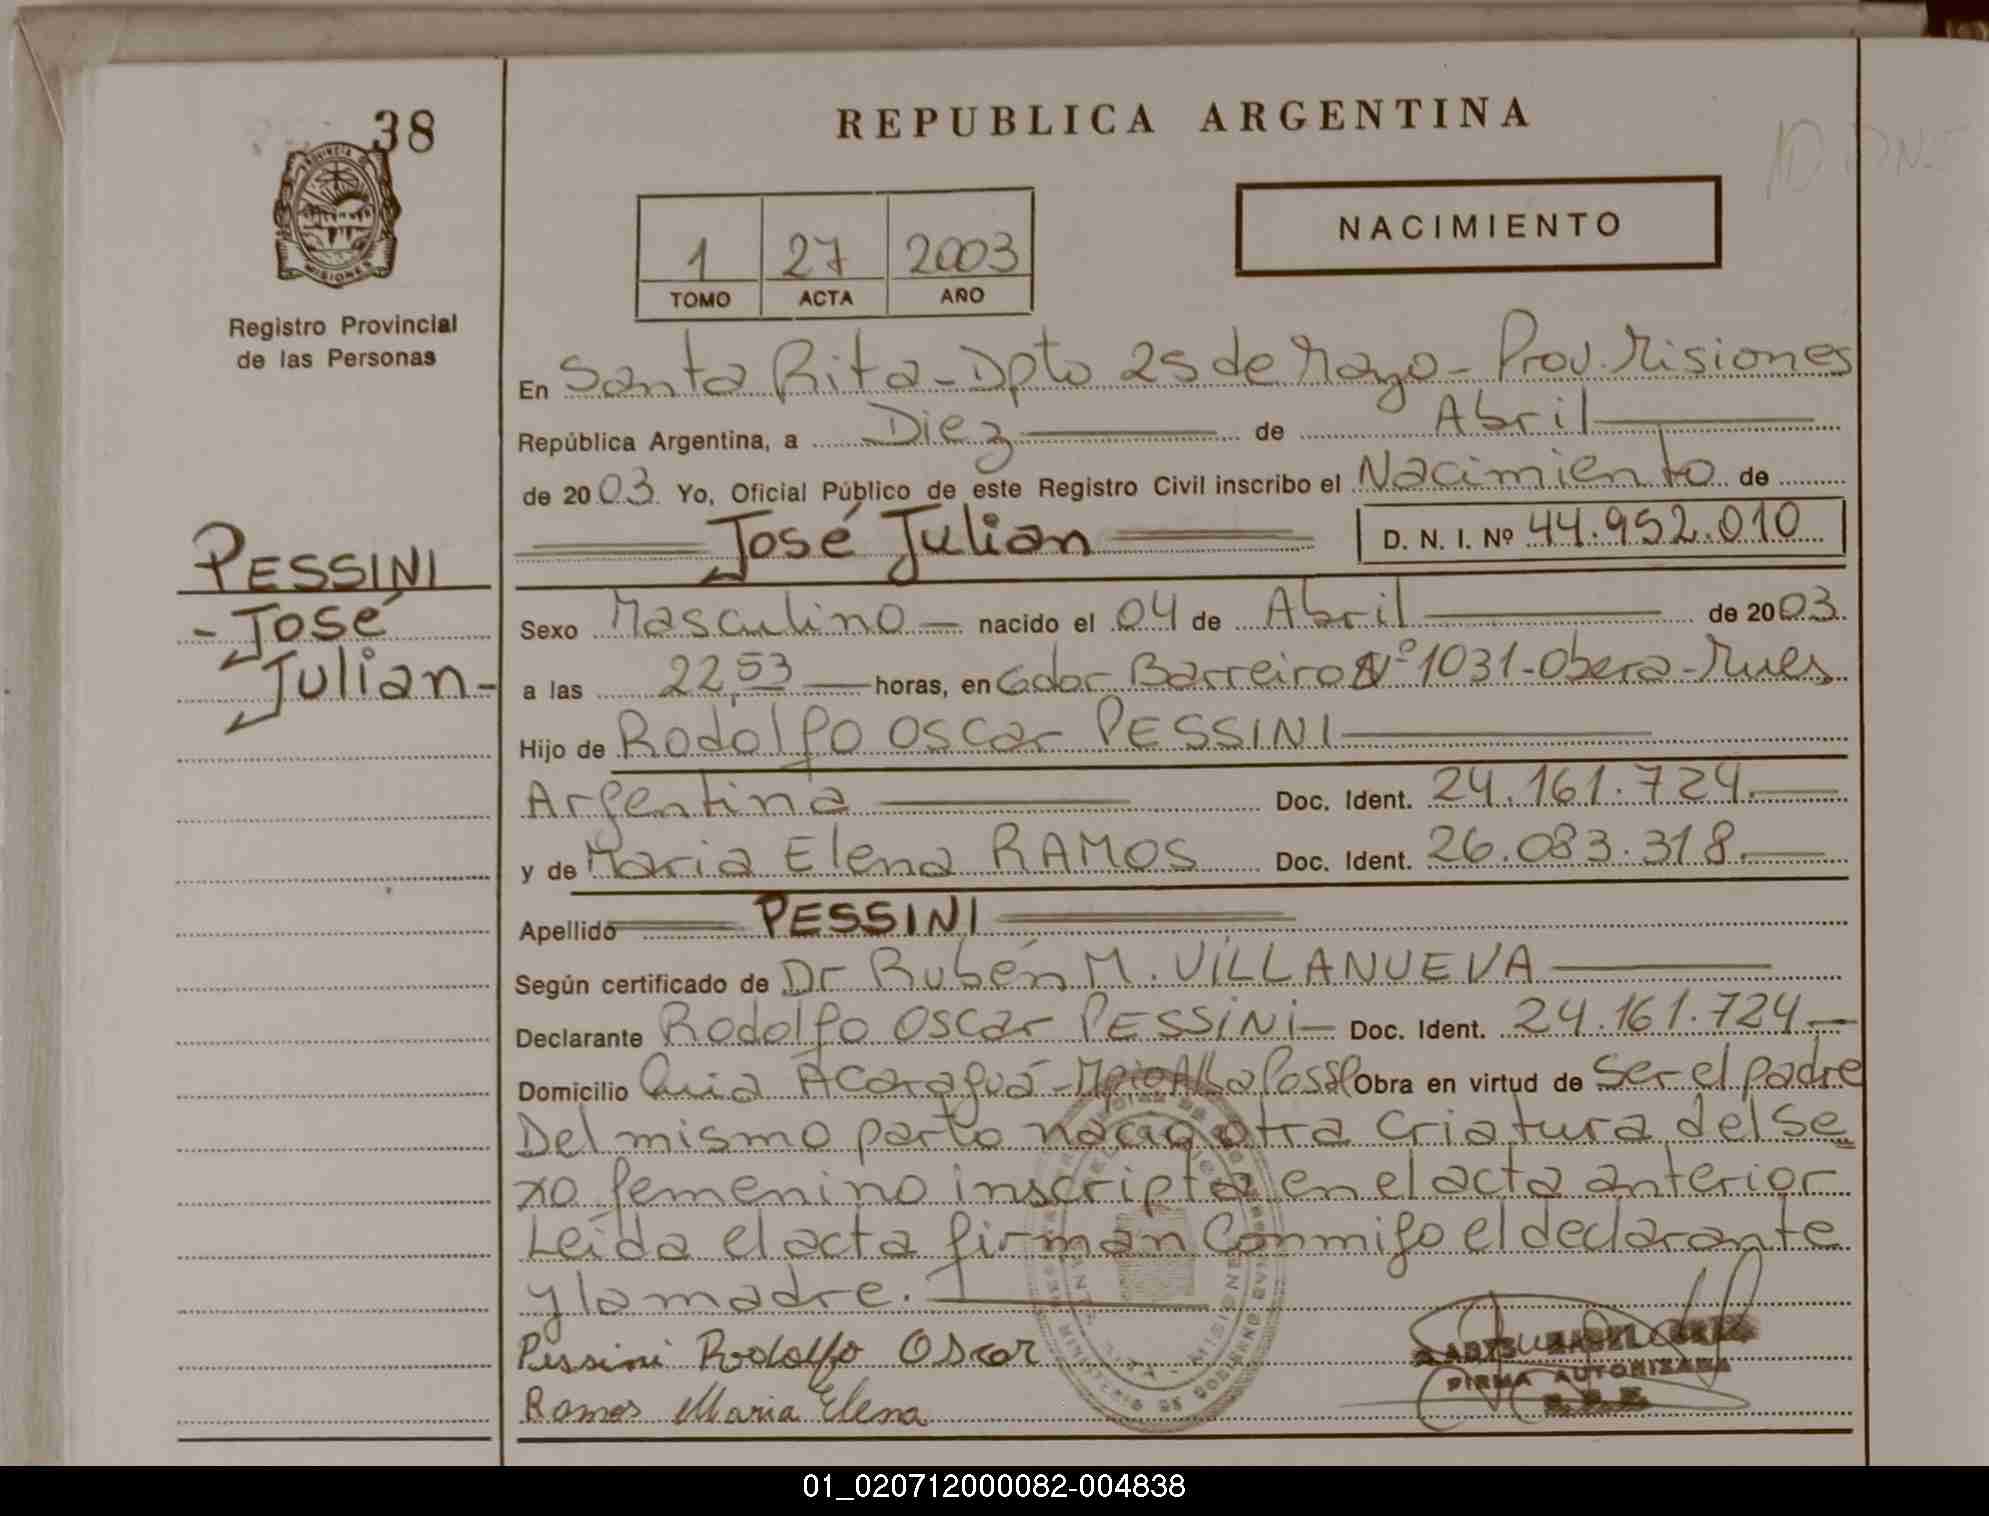 38
PROVINCIA DE
MISIONES
Registro Provincial
de las Personas
PESSINI
- José
Julian -
REPUBLICA ARGENTINA
1 27 2003
TOMO ACTA AÑO
NACIMIENTO
En Santa Rita - Dpto 25 de Mayo - Prov. Misiones
República Argentina, a Diez de Abril
de 2003 Yo, Oficial Público de este Registro Civil inscribo el Nacimiento de
José Julian D. N. I. Nº 44.952.010
Sexo Masculino nacido el 04 de Abril de 2003
a las 22,53 horas, en Gdor Barreiro Nº 1031 - Obera - Mnes
Hijo de Rodolfo Oscar PESSINI
Argentina Doc. Ident. 24.161.724.
y de Maria Elena RAMOS Doc. Ident. 26.083.318.
Apellido PESSINI
Según certificado de Dr Rubén M. VILLANUEVA
Declarante Rodolfo Oscar PESSINI Doc. Ident. 24.161.724
Domicilio Acaraguá - Mpio Alba Posse Obra en virtud de Ser el padre
Del mismo parto nacio otra criatura del se
xo femenino inscripta en el acta anterior
Leida el acta firman conmigo el declarante
y la madre.
Pessini Rodolfo Oscar
Ramos Maria Elena
FIRMA AUTORIZADA
01_020712000082-004838